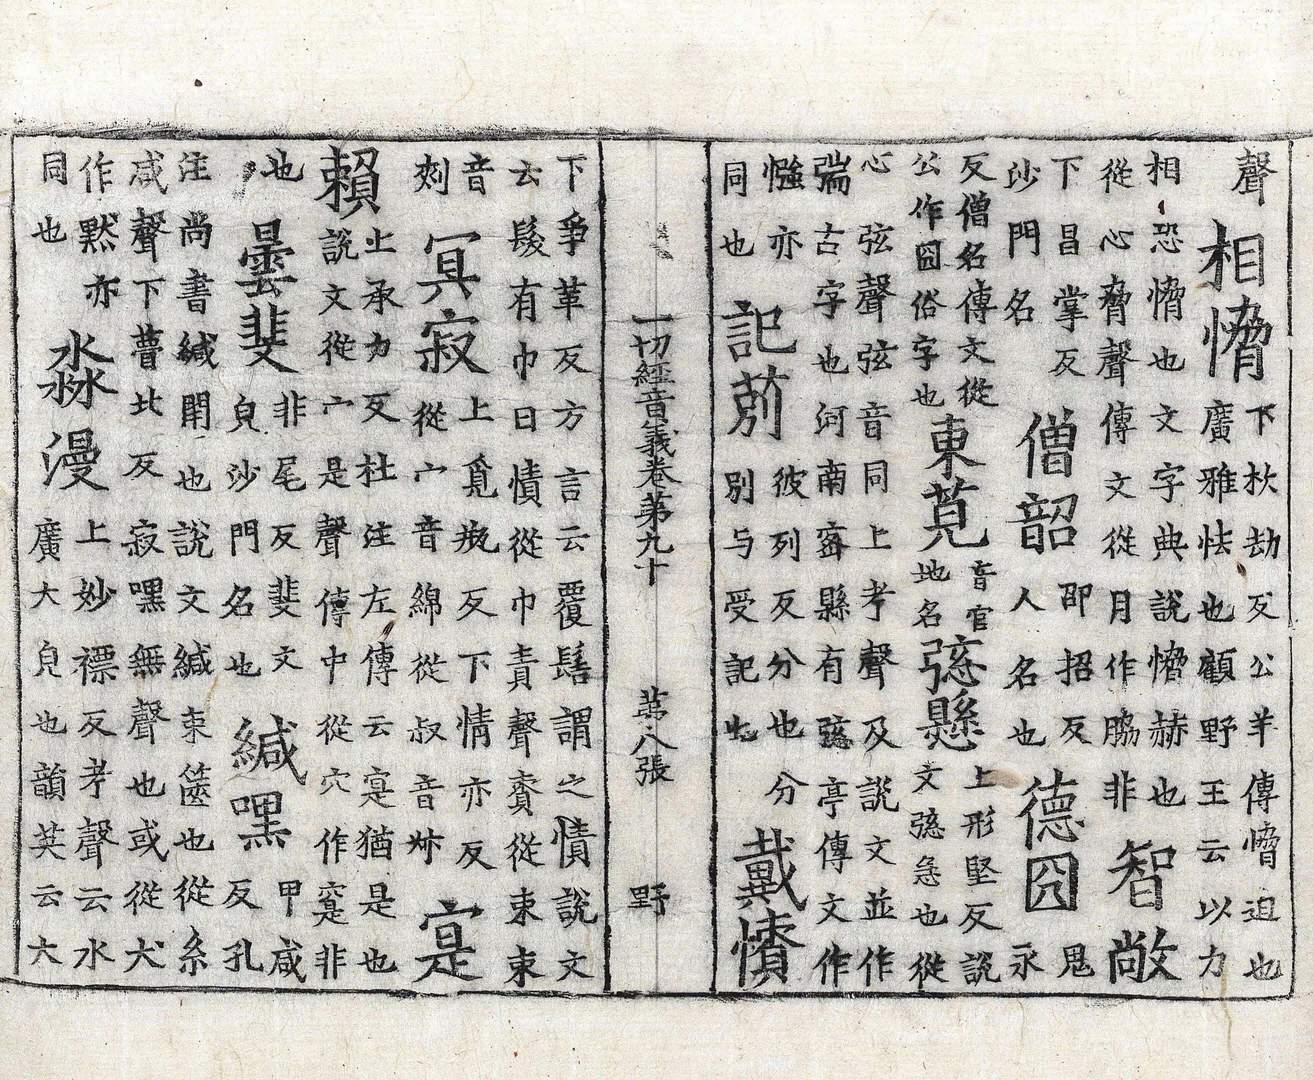 聲
相愶
下杴劫反公羊傳愶迫也
廣雅怯也顧野王云以力
相恐愶也文字典說愶赫也
從心脅聲傳文從月作脇非
智敞
下昌掌反
沙門名
僧韶
邵招反
人名也
德囧
鬼
永
反僧名傳文從
公作囼俗字也
東莧
音官
地名
㥬縣
上形堅反說
文㥬急也從
心弦聲弦音同上考聲及說文並作
古字也河南密縣有㥬亭傳文作
亦
同也
記莂
彼列反分也分
別与受記也
戴幘
一切經音義卷第九十 第八張 野
下爭革反方言云覆髻謂之幘說文
云髮有巾曰幘從巾責聲賷從朿朿
音
刾
冥寂
上覓瓶反下情亦反
從宀音綿從叔音尗
寔
賴
止承力反杜注左傳云寔猶是也
說文從宀是聲傳中從穴作寔非
也
曇斐
非尾反斐文
皃沙門名也
緘嘿
甲咸
反孔
注尚書緘閇也說文緘束篋也從糸
咸聲下瞢北反寂嘿無聲也或從犬
作默亦
同也
淼漫
上妙褾反考聲云水
廣大皃也韻英云大